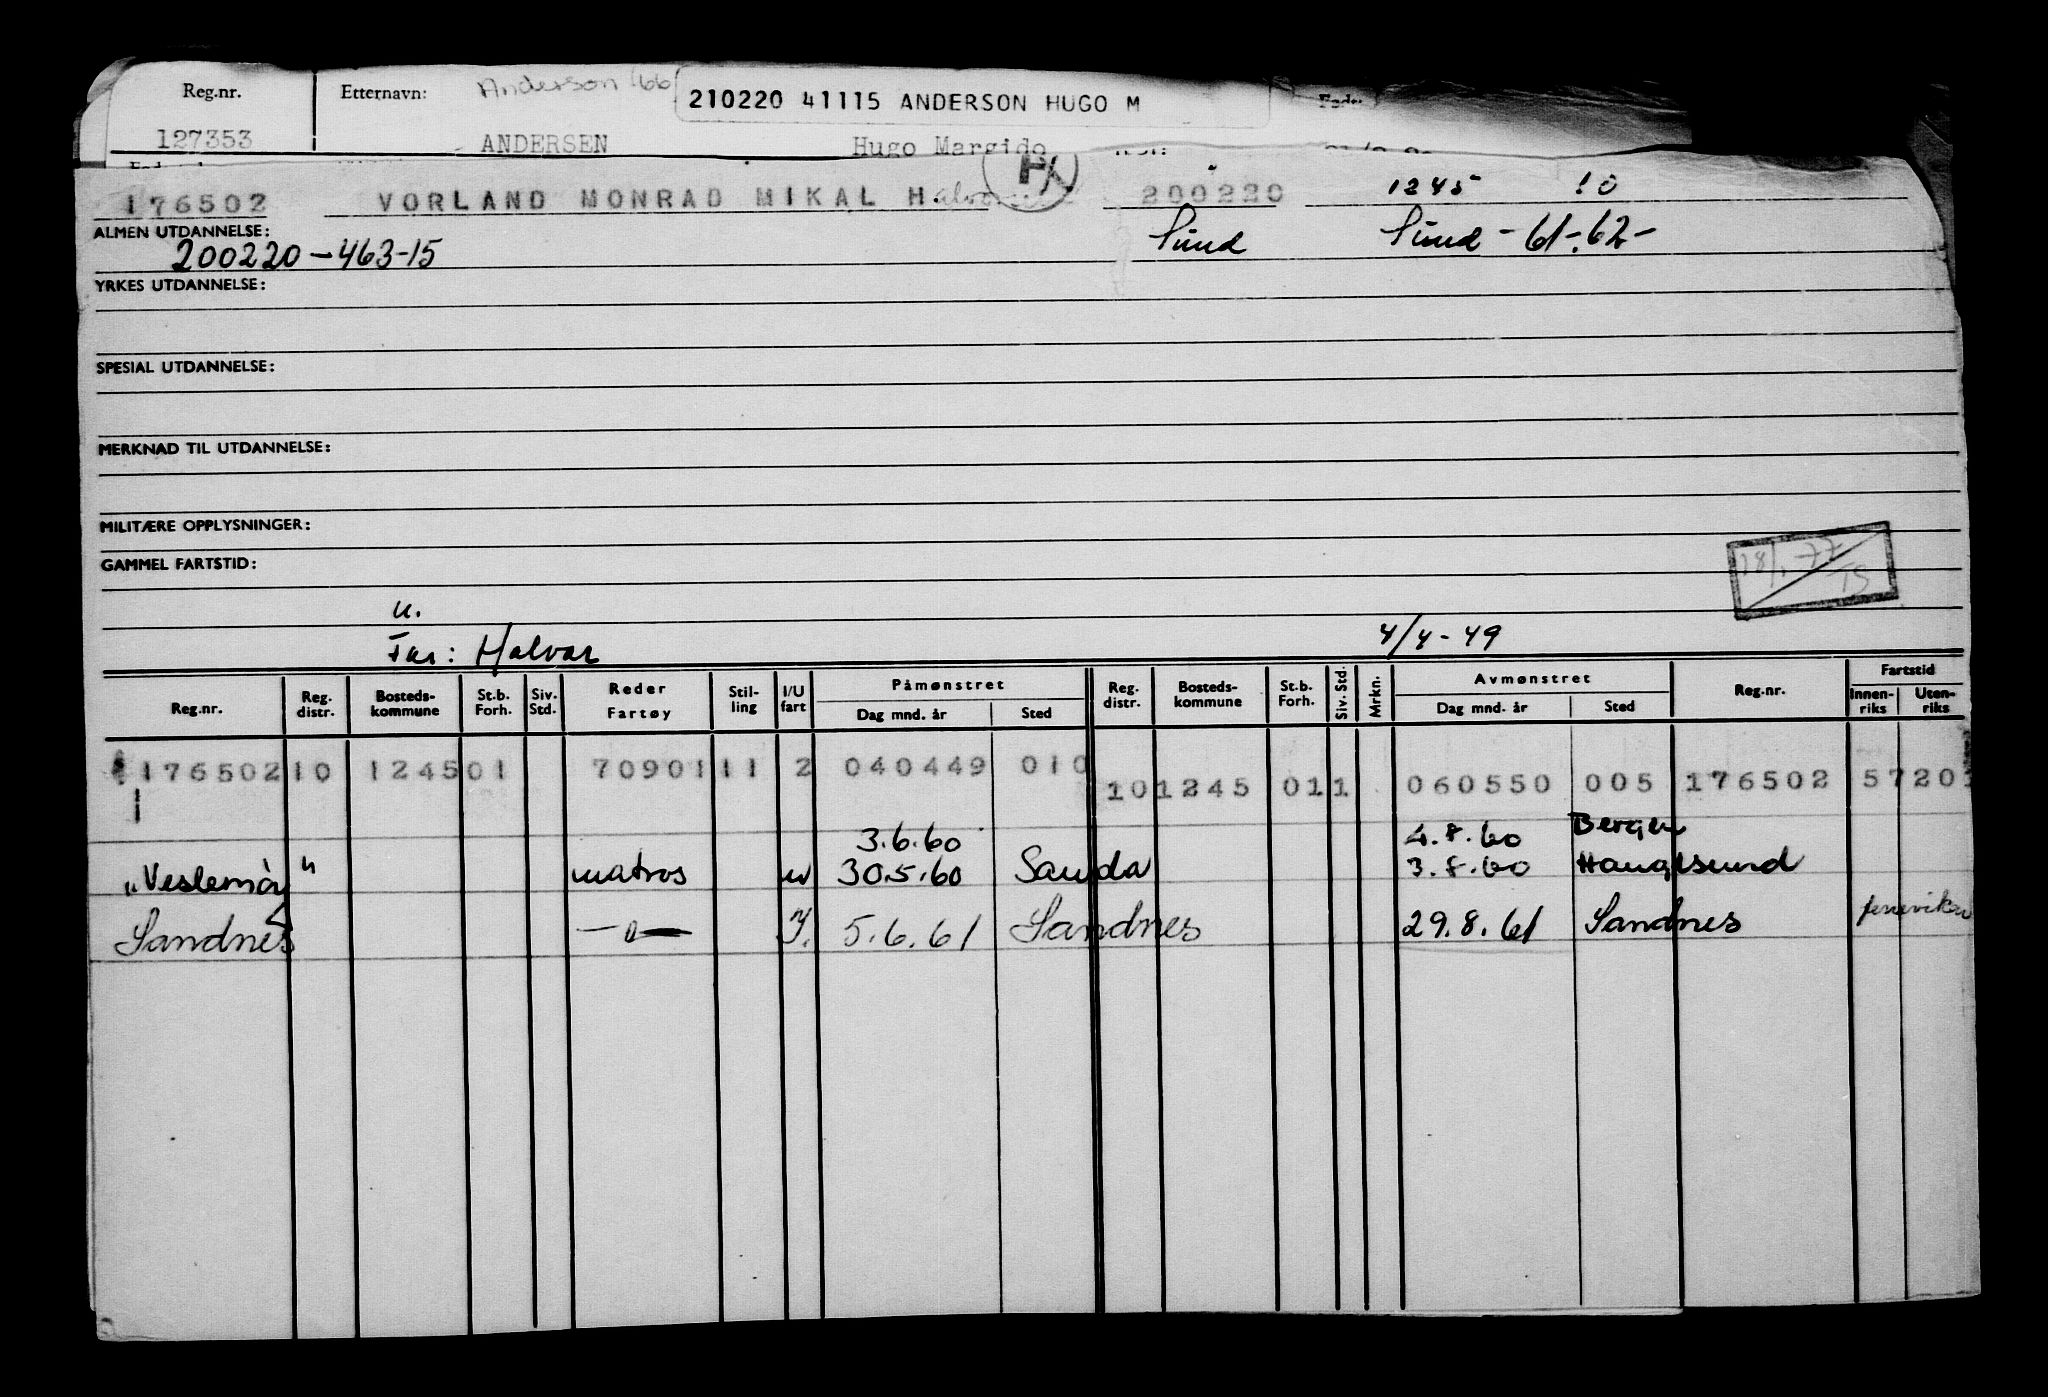 Reg.nr. Etternavn: Anderson '66 210220 41115 ANDERSON HUGO M
127353 ANDERSEN Hugo Margido
176502 VORLAND MONRAD MIKAL 200220 1245 10
ALMEN UTDANNELSE: 200220-463-15 Sund Sund -61-62-
YRKES UTDANNELSE:
SPESIAL UTDANNELSE:
MERKNAD TIL UTDANNELSE:
MILITÆRE OPPLYSNINGER:
GAMMEL FARTSTID:
u.
Far: Halvar 4/4-49
Reg.nr. Reg. distr. Bosteds-kommune St.b. Forh. Siv. Std. Reder Fartøy Stil-ling I/U fart Påmønstret Dag mnd. år Sted Reg. distr. Bosteds-kommune St.b. Forh. Siv. Std. Mrkn. Avmønstret Dag mnd. år Sted Reg.nr. Fartstid Innen-riks Uten-riks
176502 10 1245 01 70901 11 2 040449 010 10 1245 01 1 060550 005 176502 57 20
3.6.60 4.8.60 Bergen
"Veslemöy" matros u 30.5.60 Sauda 3.8.60 Haugesund
Sandnes -"- I. 5.6.61 Sandnes 29.8.61 Sandnes